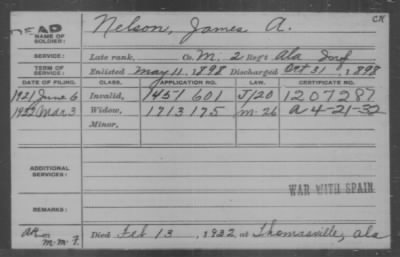 DEAD Nelson, James A. CK
NAME OF SOLDIER:
SERVICE: Late rank, Co. M. 2 Reg't Ala Inf
TERM OF SERVICE: Enlisted May 11, 1898 Discharged Oct 31, 1898
DATE OF FILING. CLASS. APPLICATION NO. LAW. CERTIFICATE NO.
1921 June 6 Invalid, 1451 601 J/20 1207287
1932 Mar 3 Widow, 1713 175 m-26 A 4-21-32
Minor,
ADDITIONAL SERVICES:
WAR WITH SPAIN
REMARKS:
m.m.7. Died Feb 13, 1932 at Thomasville, Ala